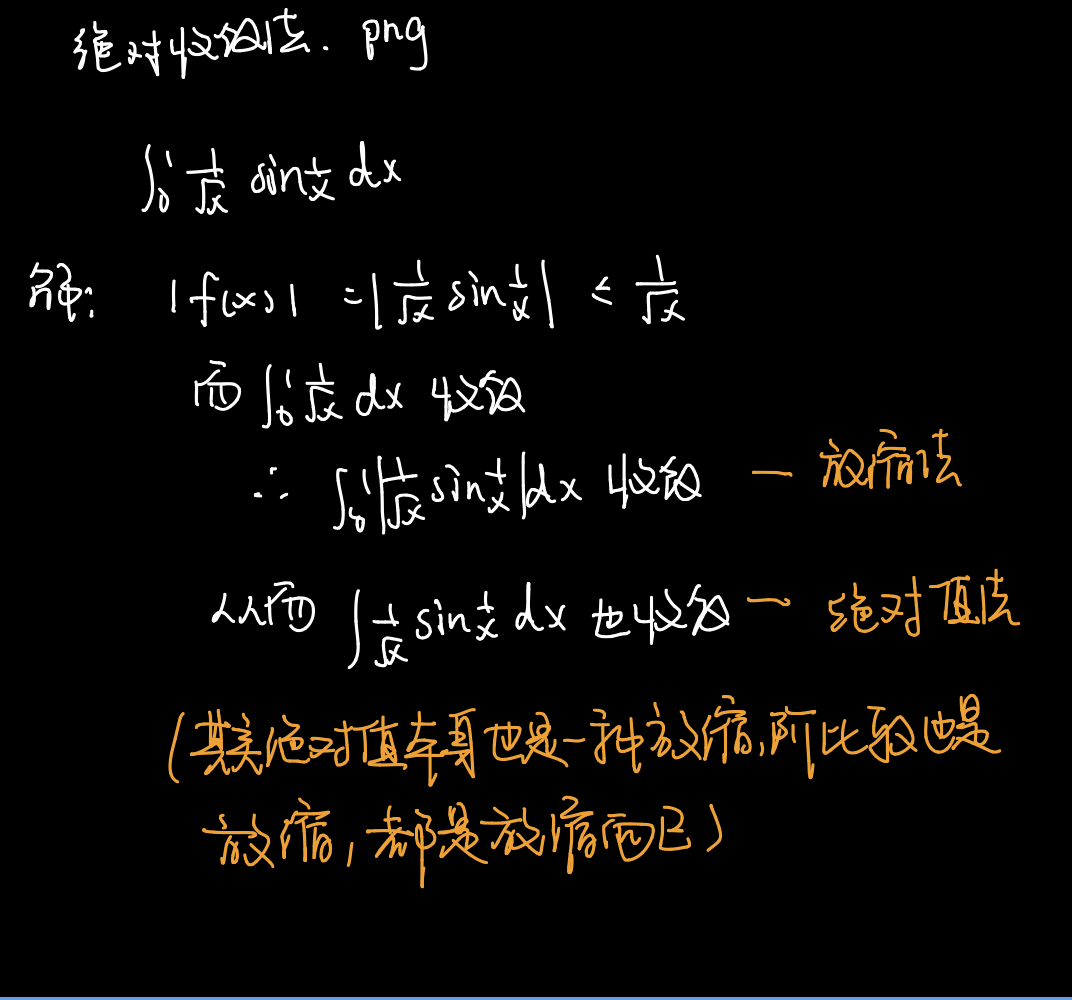 绝对收敛法. png
∫₀¹ 1/√x sin 1/x dx
解: |f(x)| = |1/√x sin 1/x| ≤ 1/√x
而 ∫₀¹ 1/√x dx 收敛
∴ ∫₀¹ |1/√x sin 1/x| dx 收敛 — 放缩法
从而 ∫ 1/√x sin 1/x dx 也收敛 — 绝对值法
(其实绝对值本身也是一种放缩,阶比较也是
放缩, 都是放缩而已)